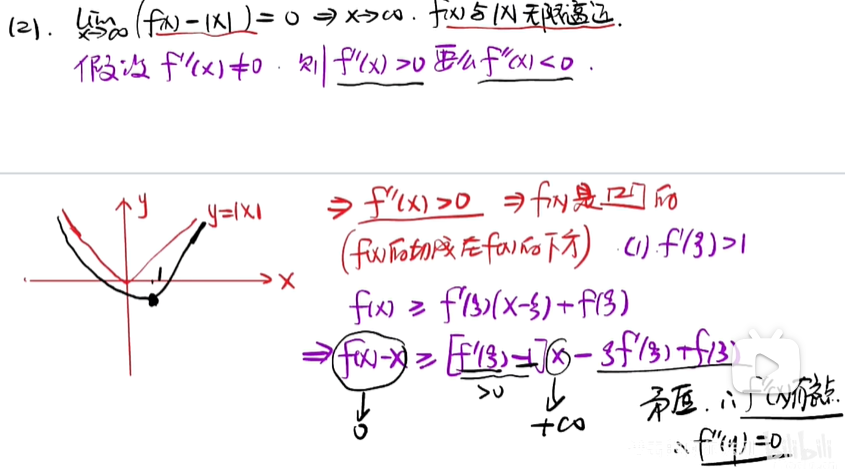 (2). lim x→∞ (f(x) - |x|) = 0 ⇒ x→∞. f(x)与|x|无限逼近.
假设 f''(x)≠0. 则 f''(x)>0 要么 f''(x)<0.
y
y=|x|
1
x
⇒ f''(x)>0 ⇒ f(x)是凹的
(f(x)的切线在f(x)的下方) (1) f'(ξ)>1
f(x) ≥ f'(ξ)(x-ξ)+f(ξ)
⇒ f(x)-x ≥ [f'(ξ)-1]x - ξf'(ξ)+f(ξ)
>0
0
+∞
矛盾. ∴ f''(x)有零点.
∴ f''(η)=0
bilibili